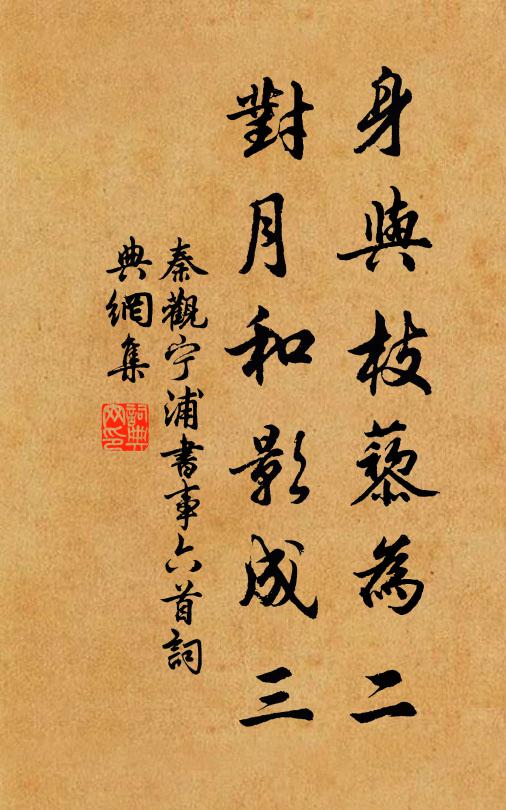 身與枝藜為二
對月和影成三
秦觀宁浦書事六首詞
典網集
詞典網印